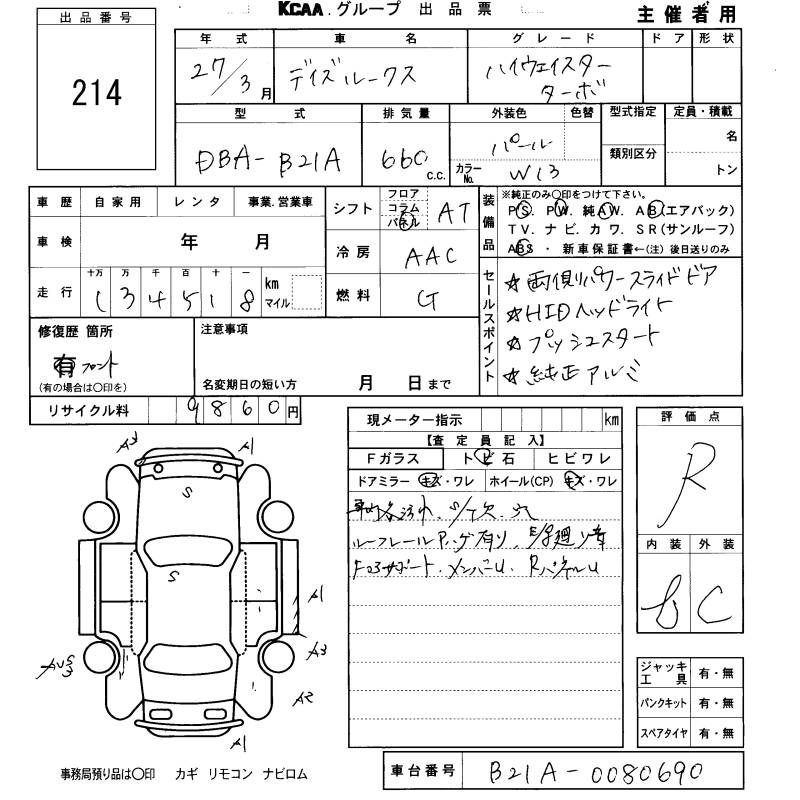 KCAA.グループ 出品票
主催者用
出品番号
214
年式 車名 グレード ドア 形状
27/3月 デイズルークス ハイウェイスター
ターボ
型式 排気量 外装色 色替 型式指定 定員・積載
DBA-B21A 660 c.c. パール 名
カラーNo. W13 類別区分 トン
車歴 自家用 レンタ 事業.営業車
車検 年 月
走行 十万 万 千 百 十 一 km マイル
1 3 4 5 1 8
シフト フロア コラム パネル AT
冷房 AAC
燃料 G
装備品
※純正のみ○印をつけて下さい。
PS. PW. 純AW. AB(エアバック)
TV. ナビ. カワ. SR(サンルーフ)
ABS ・ 新車保証書←(注) 後日送りのみ
セールスポイント
☆両側パワースライドドア
☆HIDヘッドライト
☆プッシュスタート
☆純正アルミ
修復歴 箇所
有 フロント
(有の場合は○印を)
注意事項
名変期日の短い方 月 日まで
リサイクル料 9860円
現メーター指示 km
【査定員記入】
Fガラス トビ石 ヒビワレ
ドアミラー キズ・ワレ ホイール(CP) キズ・ワレ
ルーフレール
サポート.メンバーU. RパネルU
評価点
R
内装 外装
C
A3 A1
S
S
A1
A3
A2
A1
ジャッキ工具 有・無
パンクキット 有・無
スペアタイヤ 有・無
事務局預り品は○印 カギ リモコン ナビロム
車台番号 B21A-0080690